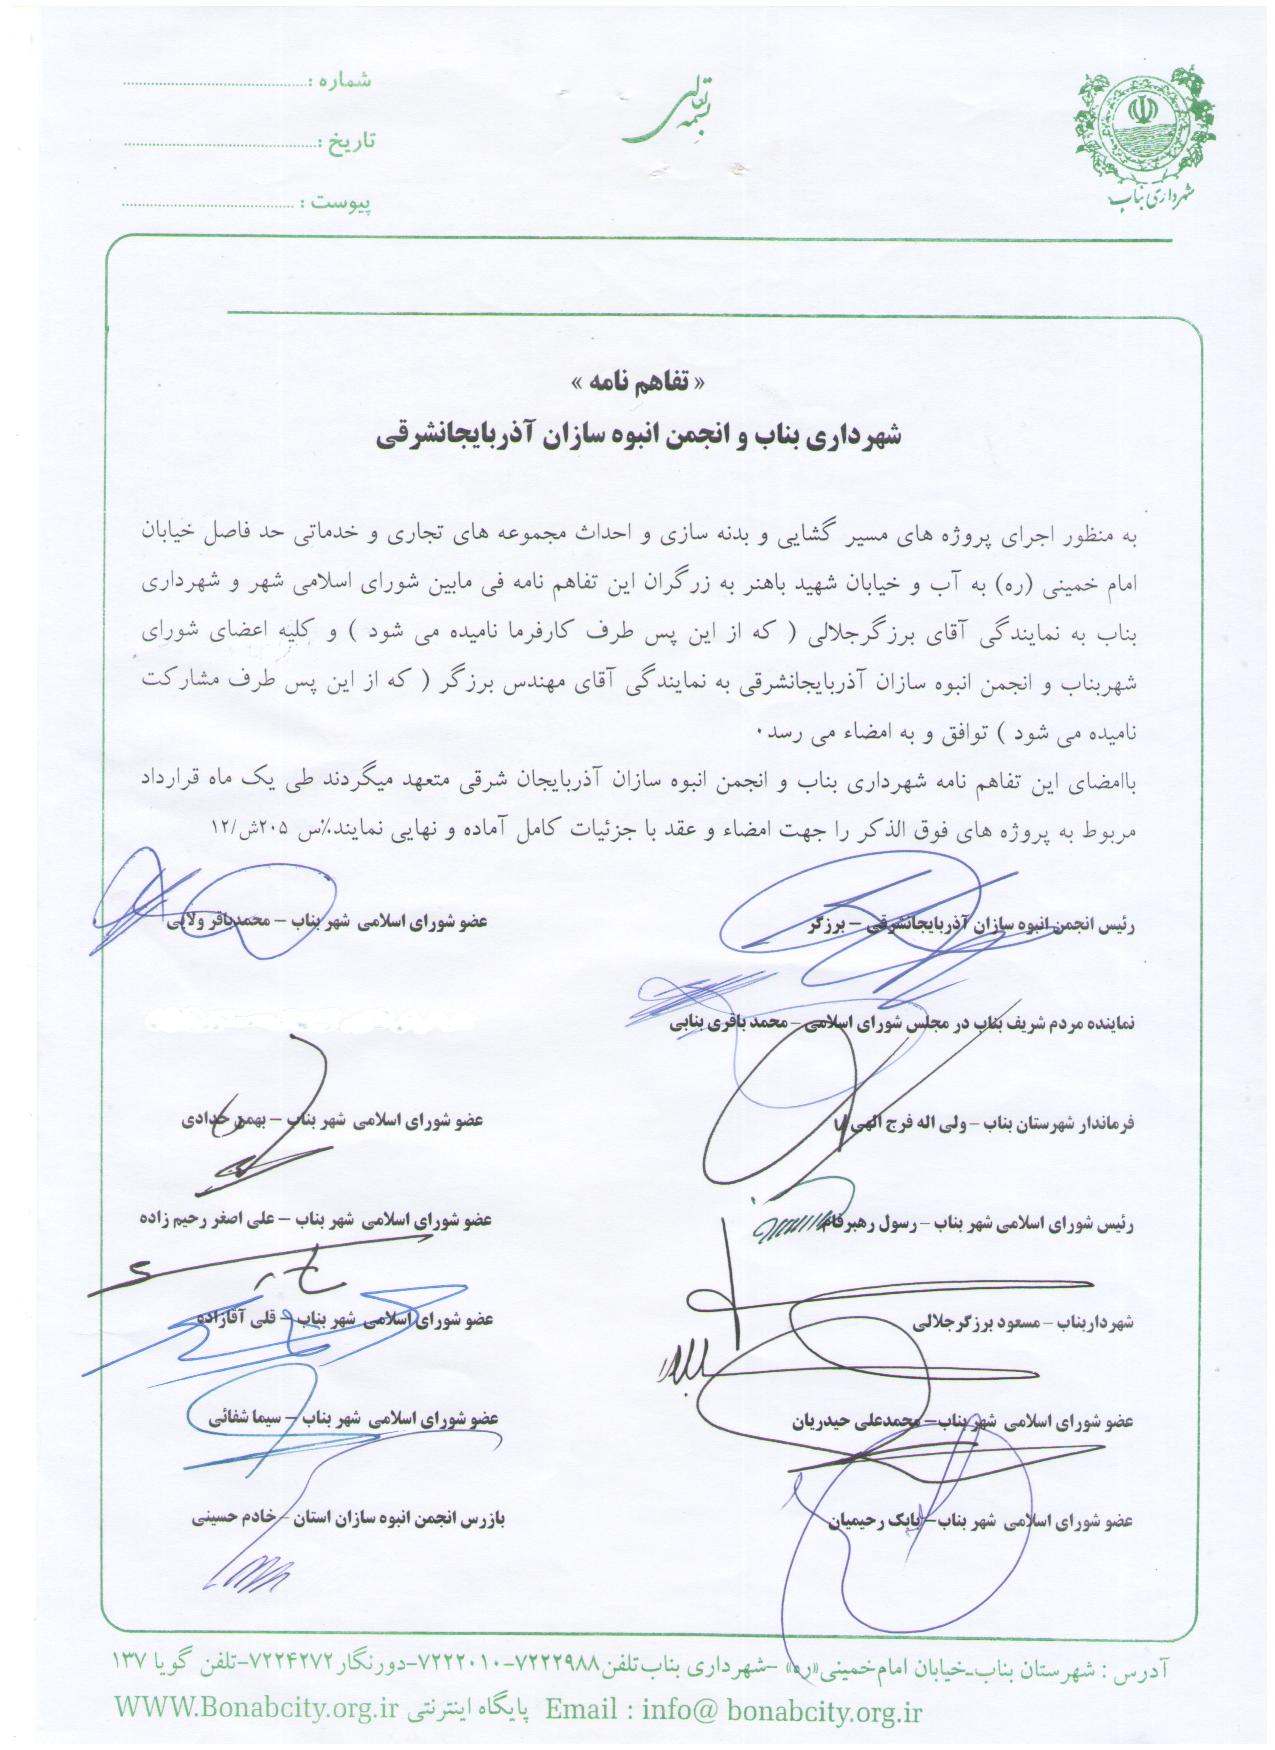 بسمه تعالی
شهرداری بناب
شماره :
تاریخ :
پیوست :
« تفاهم نامه »
شهرداری بناب و انجمن انبوه سازان آذربایجانشرقی
به منظور اجرای پروژه های مسیر گشایی و بدنه سازی و احداث مجموعه های تجاری و خدماتی حد فاصل خیابان
امام خمینی (ره) به آب و خیابان شهید باهنر به زرگران این تفاهم نامه فی مابین شورای اسلامی شهر و شهرداری
بناب به نمایندگی آقای برزگرجلالی ( که از این پس طرف کارفرما نامیده می شود ) و کلیه اعضای شورای
شهربناب و انجمن انبوه سازان آذربایجانشرقی به نمایندگی آقای مهندس برزگر ( که از این پس طرف مشارکت
نامیده می شود ) توافق و به امضاء می رسد۰
باامضای این تفاهم نامه شهرداری بناب و انجمن انبوه سازان آذربایجان شرقی متعهد میگردند طی یک ماه قرارداد
مربوط به پروژه های فوق الذکر را جهت امضاء و عقد با جزئیات کامل آماده و نهایی نمایند.٪س ۲۰۵ش/۱۲
رئیس انجمن انبوه سازان آذربایجانشرقی – برزگر
عضو شورای اسلامی شهر بناب – محمدباقر ولایی
نماینده مردم شریف بناب در مجلس شورای اسلامی – محمد باقری بنابی
فرماندار شهرستان بناب – ولی اله فرج الهی
عضو شورای اسلامی شهر بناب – بهمن حدادی
رئیس شورای اسلامی شهر بناب – رسول رهبرفام
عضو شورای اسلامی شهر بناب – علی اصغر رحیم زاده
شهرداربناب – مسعود برزگرجلالی
عضو شورای اسلامی شهر بناب – قلی آقازاده
عضو شورای اسلامی شهر بناب – محمدعلی حیدریان
عضو شورای اسلامی شهر بناب – سیما شفائی
عضو شورای اسلامی شهر بناب – بابک رحیمیان
بازرس انجمن انبوه سازان استان – خادم حسینی
آدرس : شهرستان بناب-خیابان امام خمینی«ره» -شهرداری بناب تلفن۷۲۲۲۹۸۸-۷۲۲۲۰۱۰-دورنگار۷۲۲۴۲۷۲-تلفن گویا ۱۳۷
WWW.Bonabcity.org.ir پایگاه اینترنتی Email : info@ bonabcity.org.ir